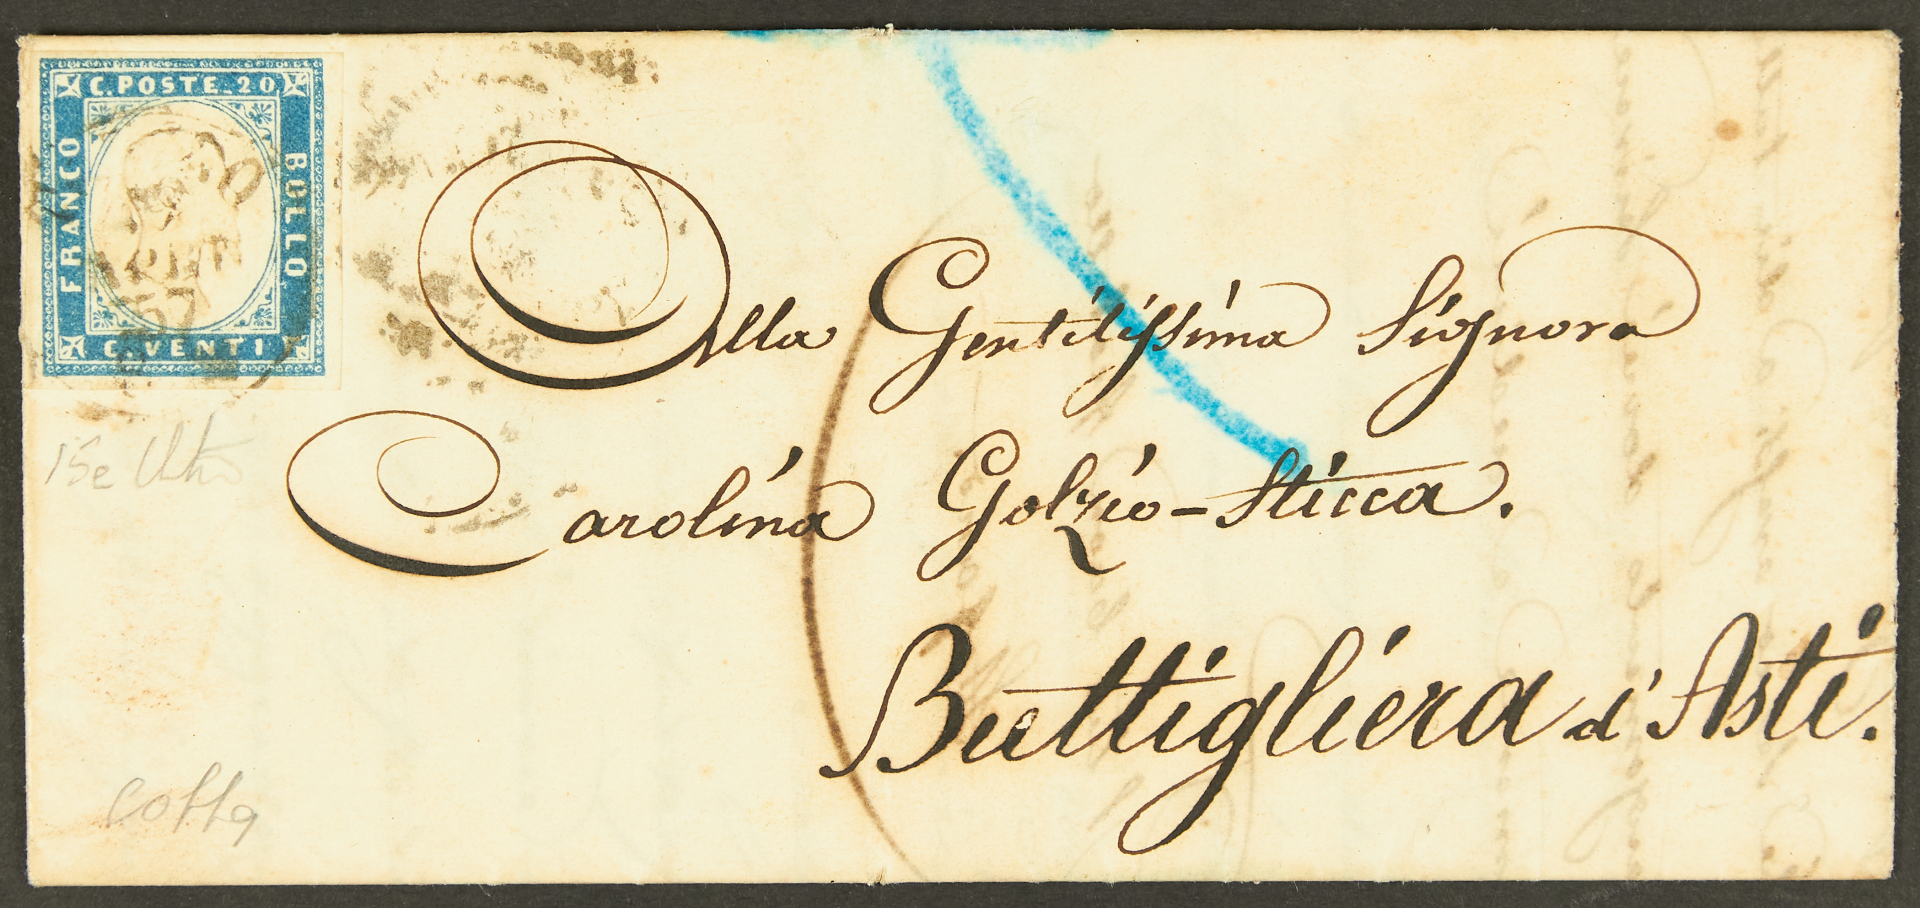 C.POSTE.20
FRANCO
BOLLO
C.VENTI
57
Alla Gentilissima Signora
Carolina Golzio-Sticca.
Buttigliera d'Asti.